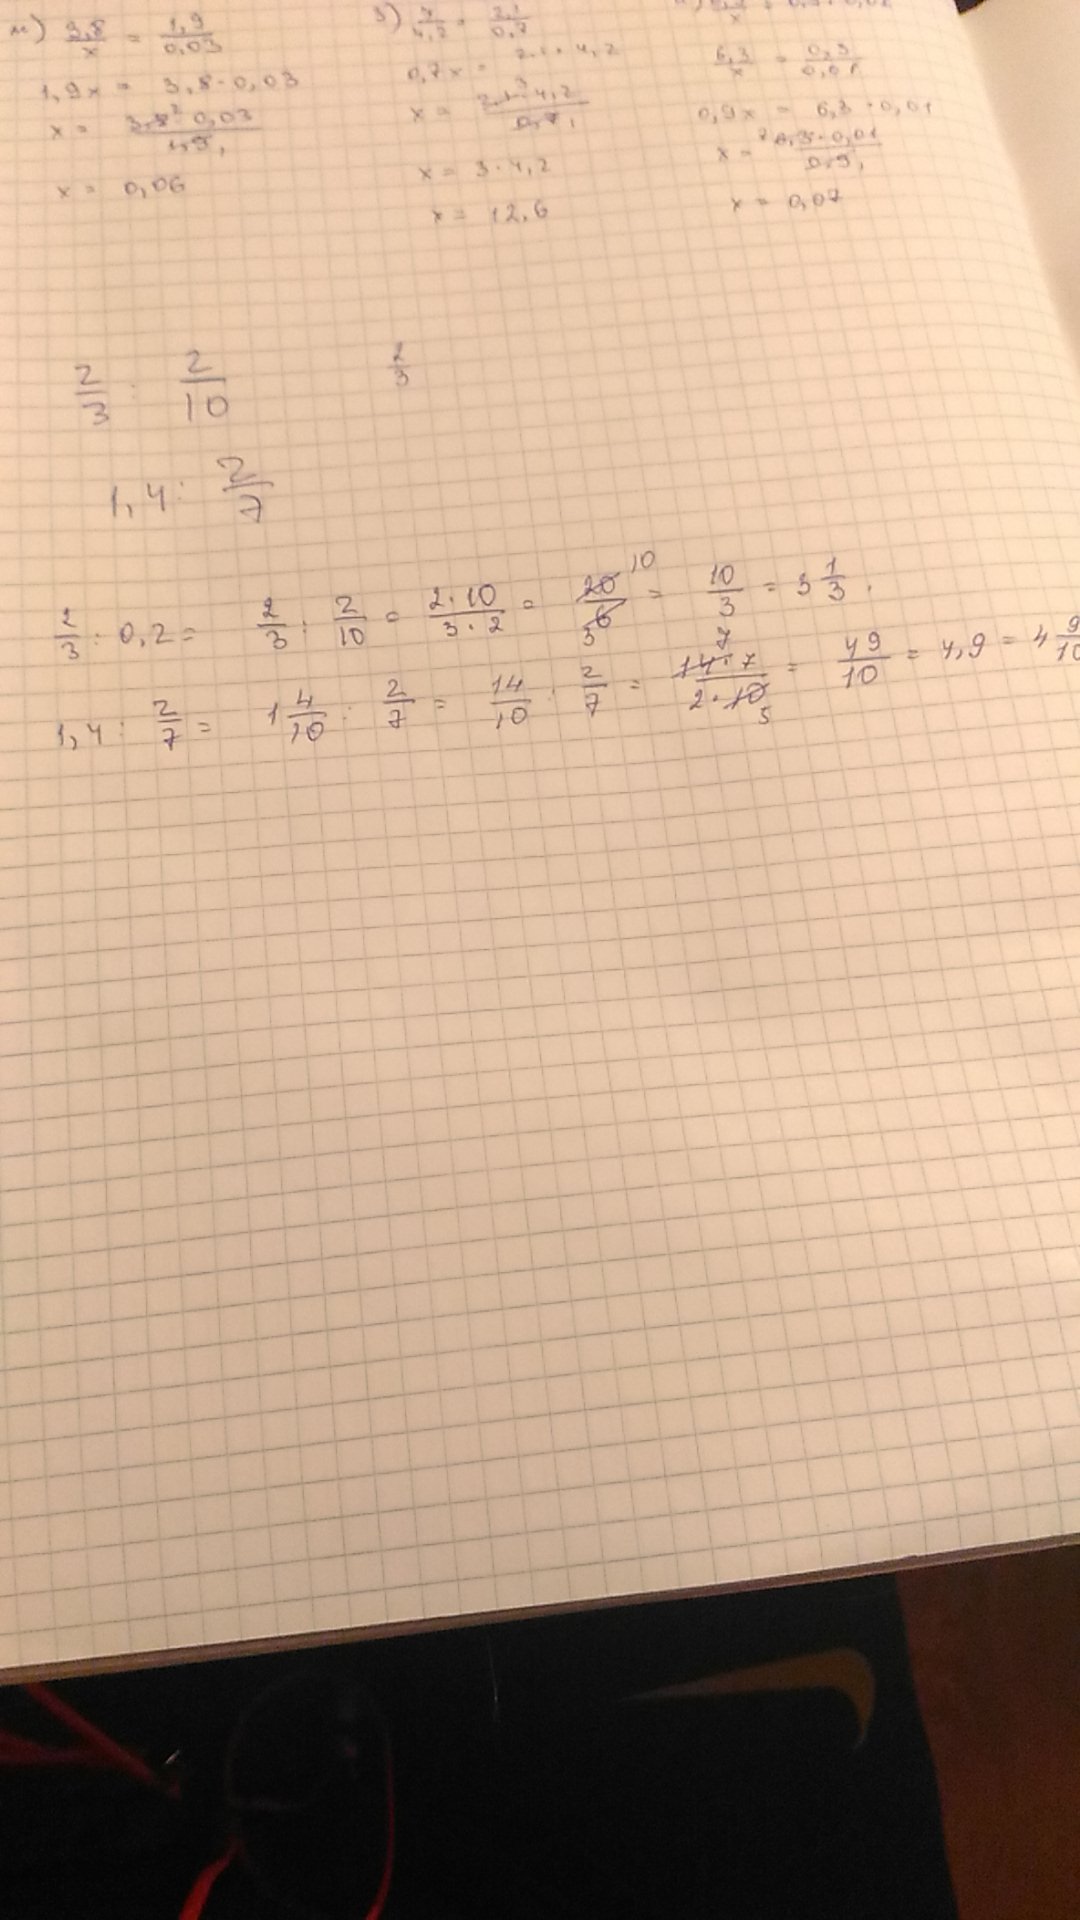 ж) 3,8/x = 1,9/0,03
1,9x = 3,8·0,03
x = 3,8² 0,03/1,9₁
x = 0,06
з) x/4,2 = 2,1/0,7
0,7x = 2,1·4,2
x = 2,1³·4,2/0,7₁
x = 3·4,2
x = 12,6
6,3/x = 0,9/0,01
0,9x = 6,3·0,01
x = ⁷6,3·0,01/0,9₁
x = 0,07
2/3 : 2/10 2/3
1,4 : 2/7
2/3 : 0,2 = 2/3 : 2/10 = 2·10/3·2 = 20 10/6 3 = 10/3 = 3 1/3.
1,4 : 2/7 = 1 4/10 : 2/7 = 14/10 : 2/7 = 7 14·7/2·10 5 = 49/10 = 4,9 = 4 9/10